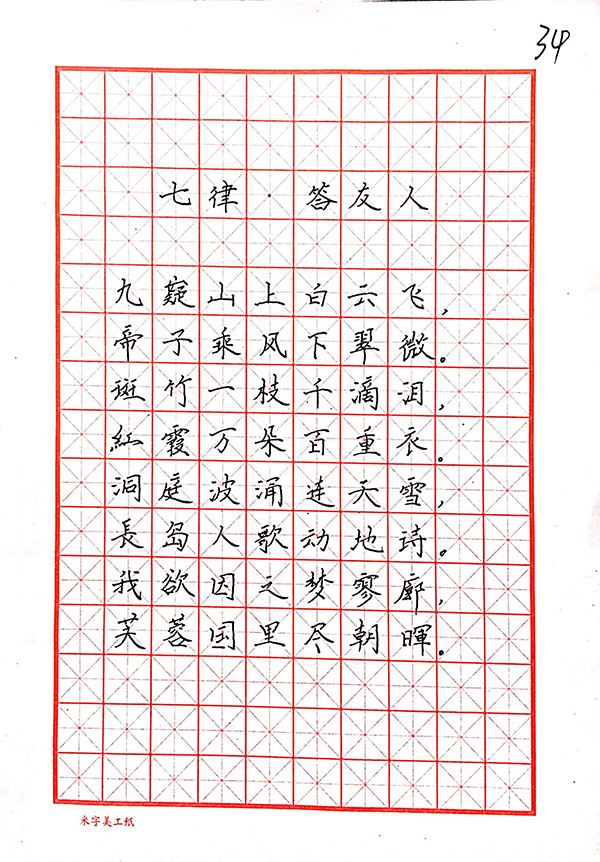 34
七律·答友人
九嶷山上白云飞，
帝子乘风下翠微。
斑竹一枝千滴泪，
紅霞万朵百重衣。
洞庭波涌连天雪，
長岛人歌动地诗。
我欲因之梦寥廓，
芙蓉国里尽朝暉。
米字美工纸